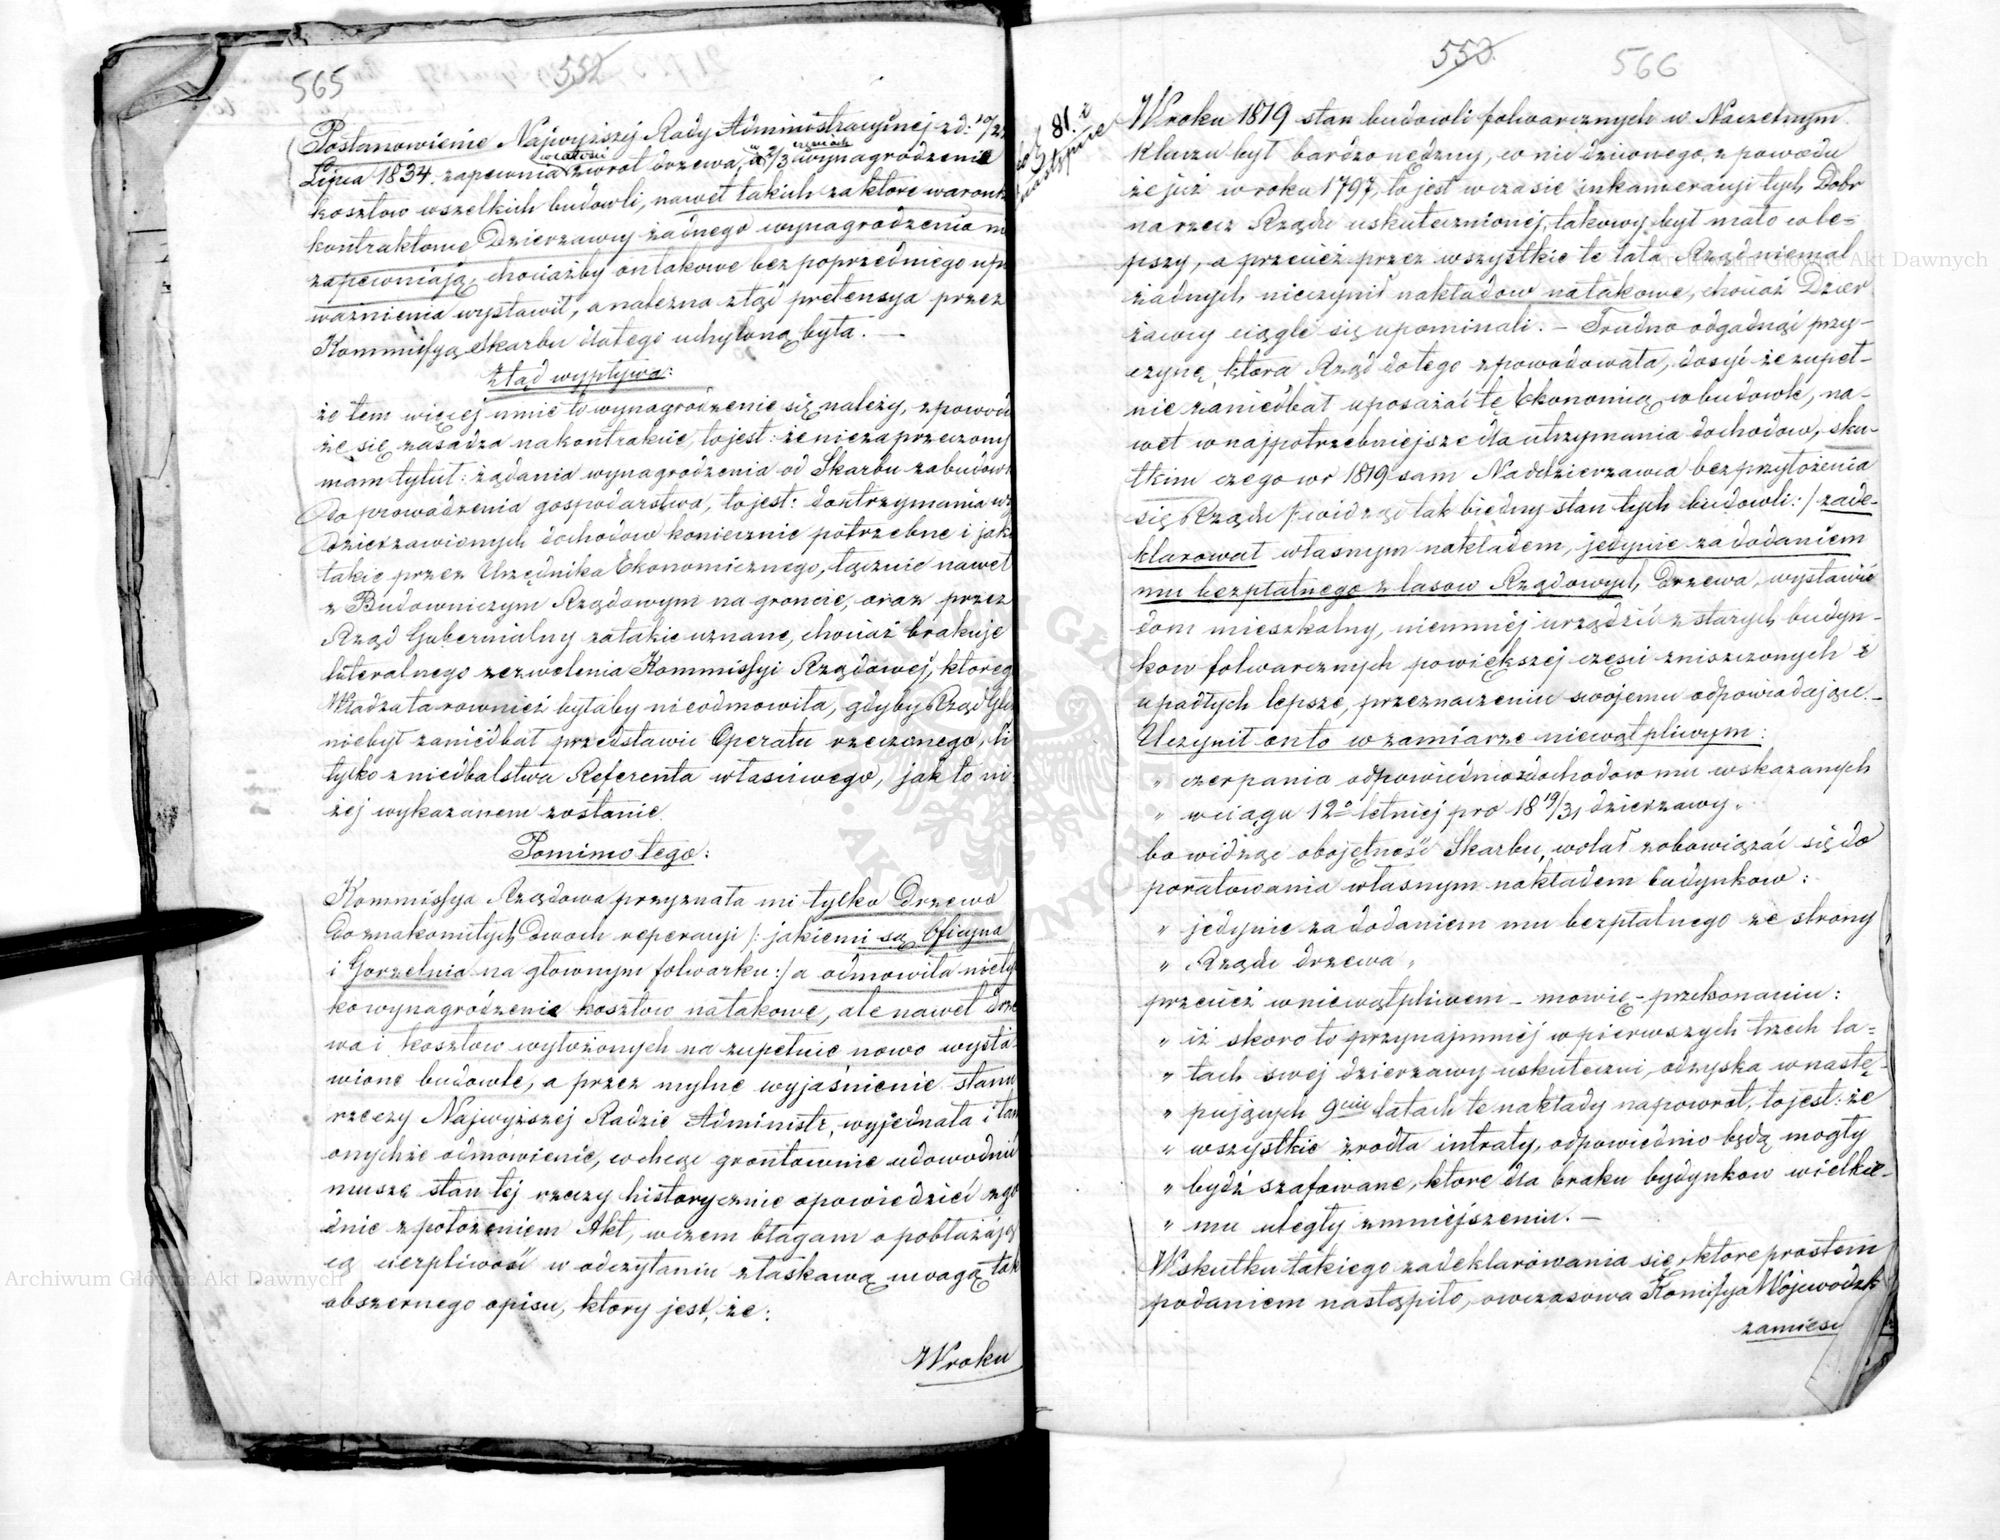 565
552
Postanowienie Najwyższej Rady Administracyjnej z d: 10/22
w całości w częściach
Lipca 1834. zapewnia zwrot drzewa, i 2/3 wynagrodzenie
kosztow wszelkich budowli, nawet takich za ktore warunk
kontraktowe Dzierzawcy żadnego wynagrodzenia n
zapewniają, chociażby on takowe bez poprzedniego up
ważnienia wystawił, a należna ztąd pretensya przez
Kommissyą Skarbu dla tego uchyloną była. —
Ztąd wypływa:
że tem więcej mnie to wynagrodzenie się należy, z powodu
że się zasadza na kontrakcie, to jest: że niezaprzeczony
mam tytuł: żądania wynagrodzenia od Skarbu za budowl
do prowadzenia gospodarstwa, to jest: do utrzymania w
dzierzawionych dochodow koniecznie potrzebne i jako
takie przez Urzędnika Ekonomicznego, łącznie nawet
z Budowniczym Rządowym na groncie, oraz przez
Rząd Gubernialny za takie uznane, chociaż brakuje
literalnego zezwolenia Kommissyi Rządowej, ktoreg
Władza ta rownież byłaby nieodmowiła, gdyby Rząd Gub
niebył zaniedbał przedstawić Operatu rzeczonego, li
tylko z niedbalstwa Referenta właściwego, jak to ni
żej wykazanem zostanie.
Pomimo tego:
Kommissya Rządowa przyznała mi tylko Drzewo
do znakomitych dwoch reperacyi /: jakiemi są Oficyna
i Gorzelnia na głownym folwarku :/ a odmowiła niety
ko wynagrodzenie kosztow na takowe, ale nawet drze
wa i kosztow wyłożonych na zupełnie nowo wysta
wione budowle, a przez mylne wyjaśnienie stanu
rzeczy Najwyższej Radzie Administr. wyjednała i tam
onychże odmowienie, co chcąc grontownie udowodnić
muszę stan tej rzeczy historycznie opowiedzieć zgo
dnie z położeniem Akt, w czem błagam o pobłażają
cą cierpliwość w odczytaniu z łaskawą uwagą tak
obszernego opisu, ktory jest, że:
W roku
550
566
81. i
następnie
W roku 1819 stan budowli folwarcznych w Naczelnym
kluczu był bardzo nędzny, co nie dziwnego, z powodu
że już w roku 1797, to jest w czasie inkameracyi tych Dobr
na rzecz Rządu uskutecznionej, takowy był mało co le=
pszy, a przecież przez wszystkie te lata Rząd niemal
żadnych nieczynił nakładow na takowe, chociaż Dzier
żawcy ciągle się upominali. — Trudno odgadnąć przy-
czynę, ktora Rząd do tego spowodowała, dosyć że zupeł-
nie zaniedbał uposażać tę Ekonomią w budowle, na-
wet w najpotrzebniejsze dla utrzymania dochodow, sku-
tkiem czego w r 1819 sam Naddzierzawca bez przyłożenia
się Rządu /: widząc tak biedny stan tych budowli :/ zade-
klarował własnym nakładem, jedynie za dodaniem
mu bezpłatnego z lasow Rządowych Drzewa, wystawić
dom mieszkalny, niemniej urządzić z starych budyn-
kow folwarcznych powiększej części zniszczonych i
upadłych lepsze, przeznaczeniu swojemu odpowiadające. —
Uczynił on to w zamiarze niewątpliwym:
„ czerpania odpowiednio dochodow mu wskazanych
„ w ciągu 12o letniej pro 18 19/31 dzierzawy „
bo widząc obojętność Skarbu, wolał zobowiązać się do
poratowania własnym nakładem budynkow:
„ jedynie za dodaniem mu bezpłatnego ze strony
„ Rządu drzewa „
przecież w niewątpliwem — mowię — przekonaniu:
„ iż skoro to przynajmniej w pierwszych trzech la=
„ tach swej dzierzawy uskuteczni, odzyska w nastę-
„ pujących 9ciu latach te nakłady napowrot, to jest: że
„ wszystkie źrodła intraty, odpowiednio będą mogły
„ bydź szafowane, ktore dla braku bydynkow wielkie-
„ mu uległy zmniejszeniu. —
W skutku takiego zadeklarowania się, ktore prostem
podaniem nastąpiło, owczasowa Komissya Wojewodzk
zamiesz
Archiwum Główne Akt Dawnych
Archiwum Główne Akt Dawnych